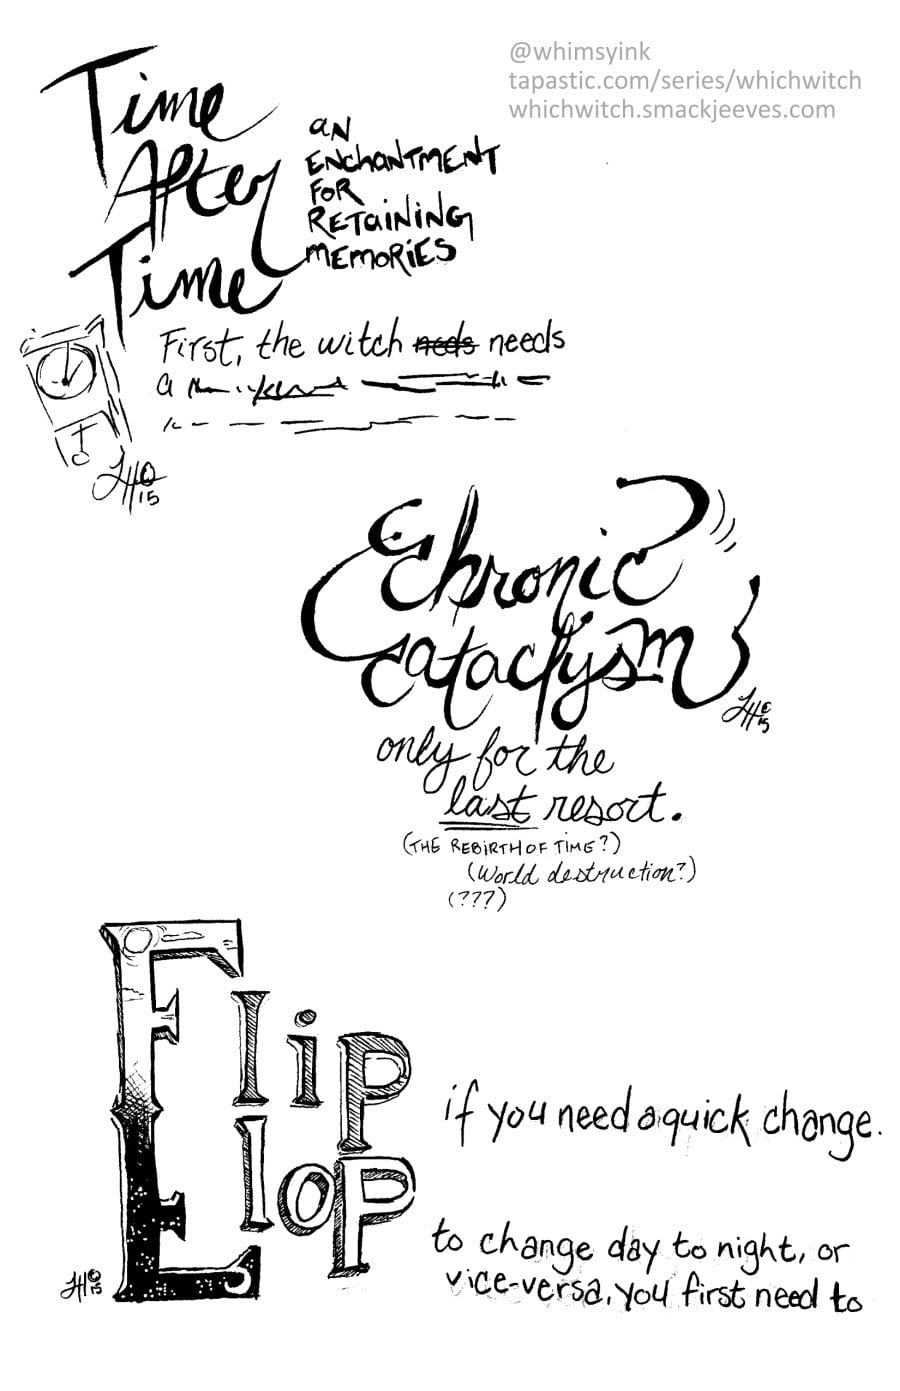 @whimsyink
tapastic.com/series/whichwitch
whichwitch.smackjeeves.com
Time
After
Time
an
ENchaNTMENT
FOR
RETaiNiNG
MEMORiES
First, the witch neds needs
a
LH©
15
Chronic
Cataclysm
only for the
last resort.
(THE REBiRTH OF TiME?)
(World destruction?)
(???)
LH©
15
Flip
Flop
if you need a quick change.
to change day to night, or
vice-versa, you first need to
LH©
15